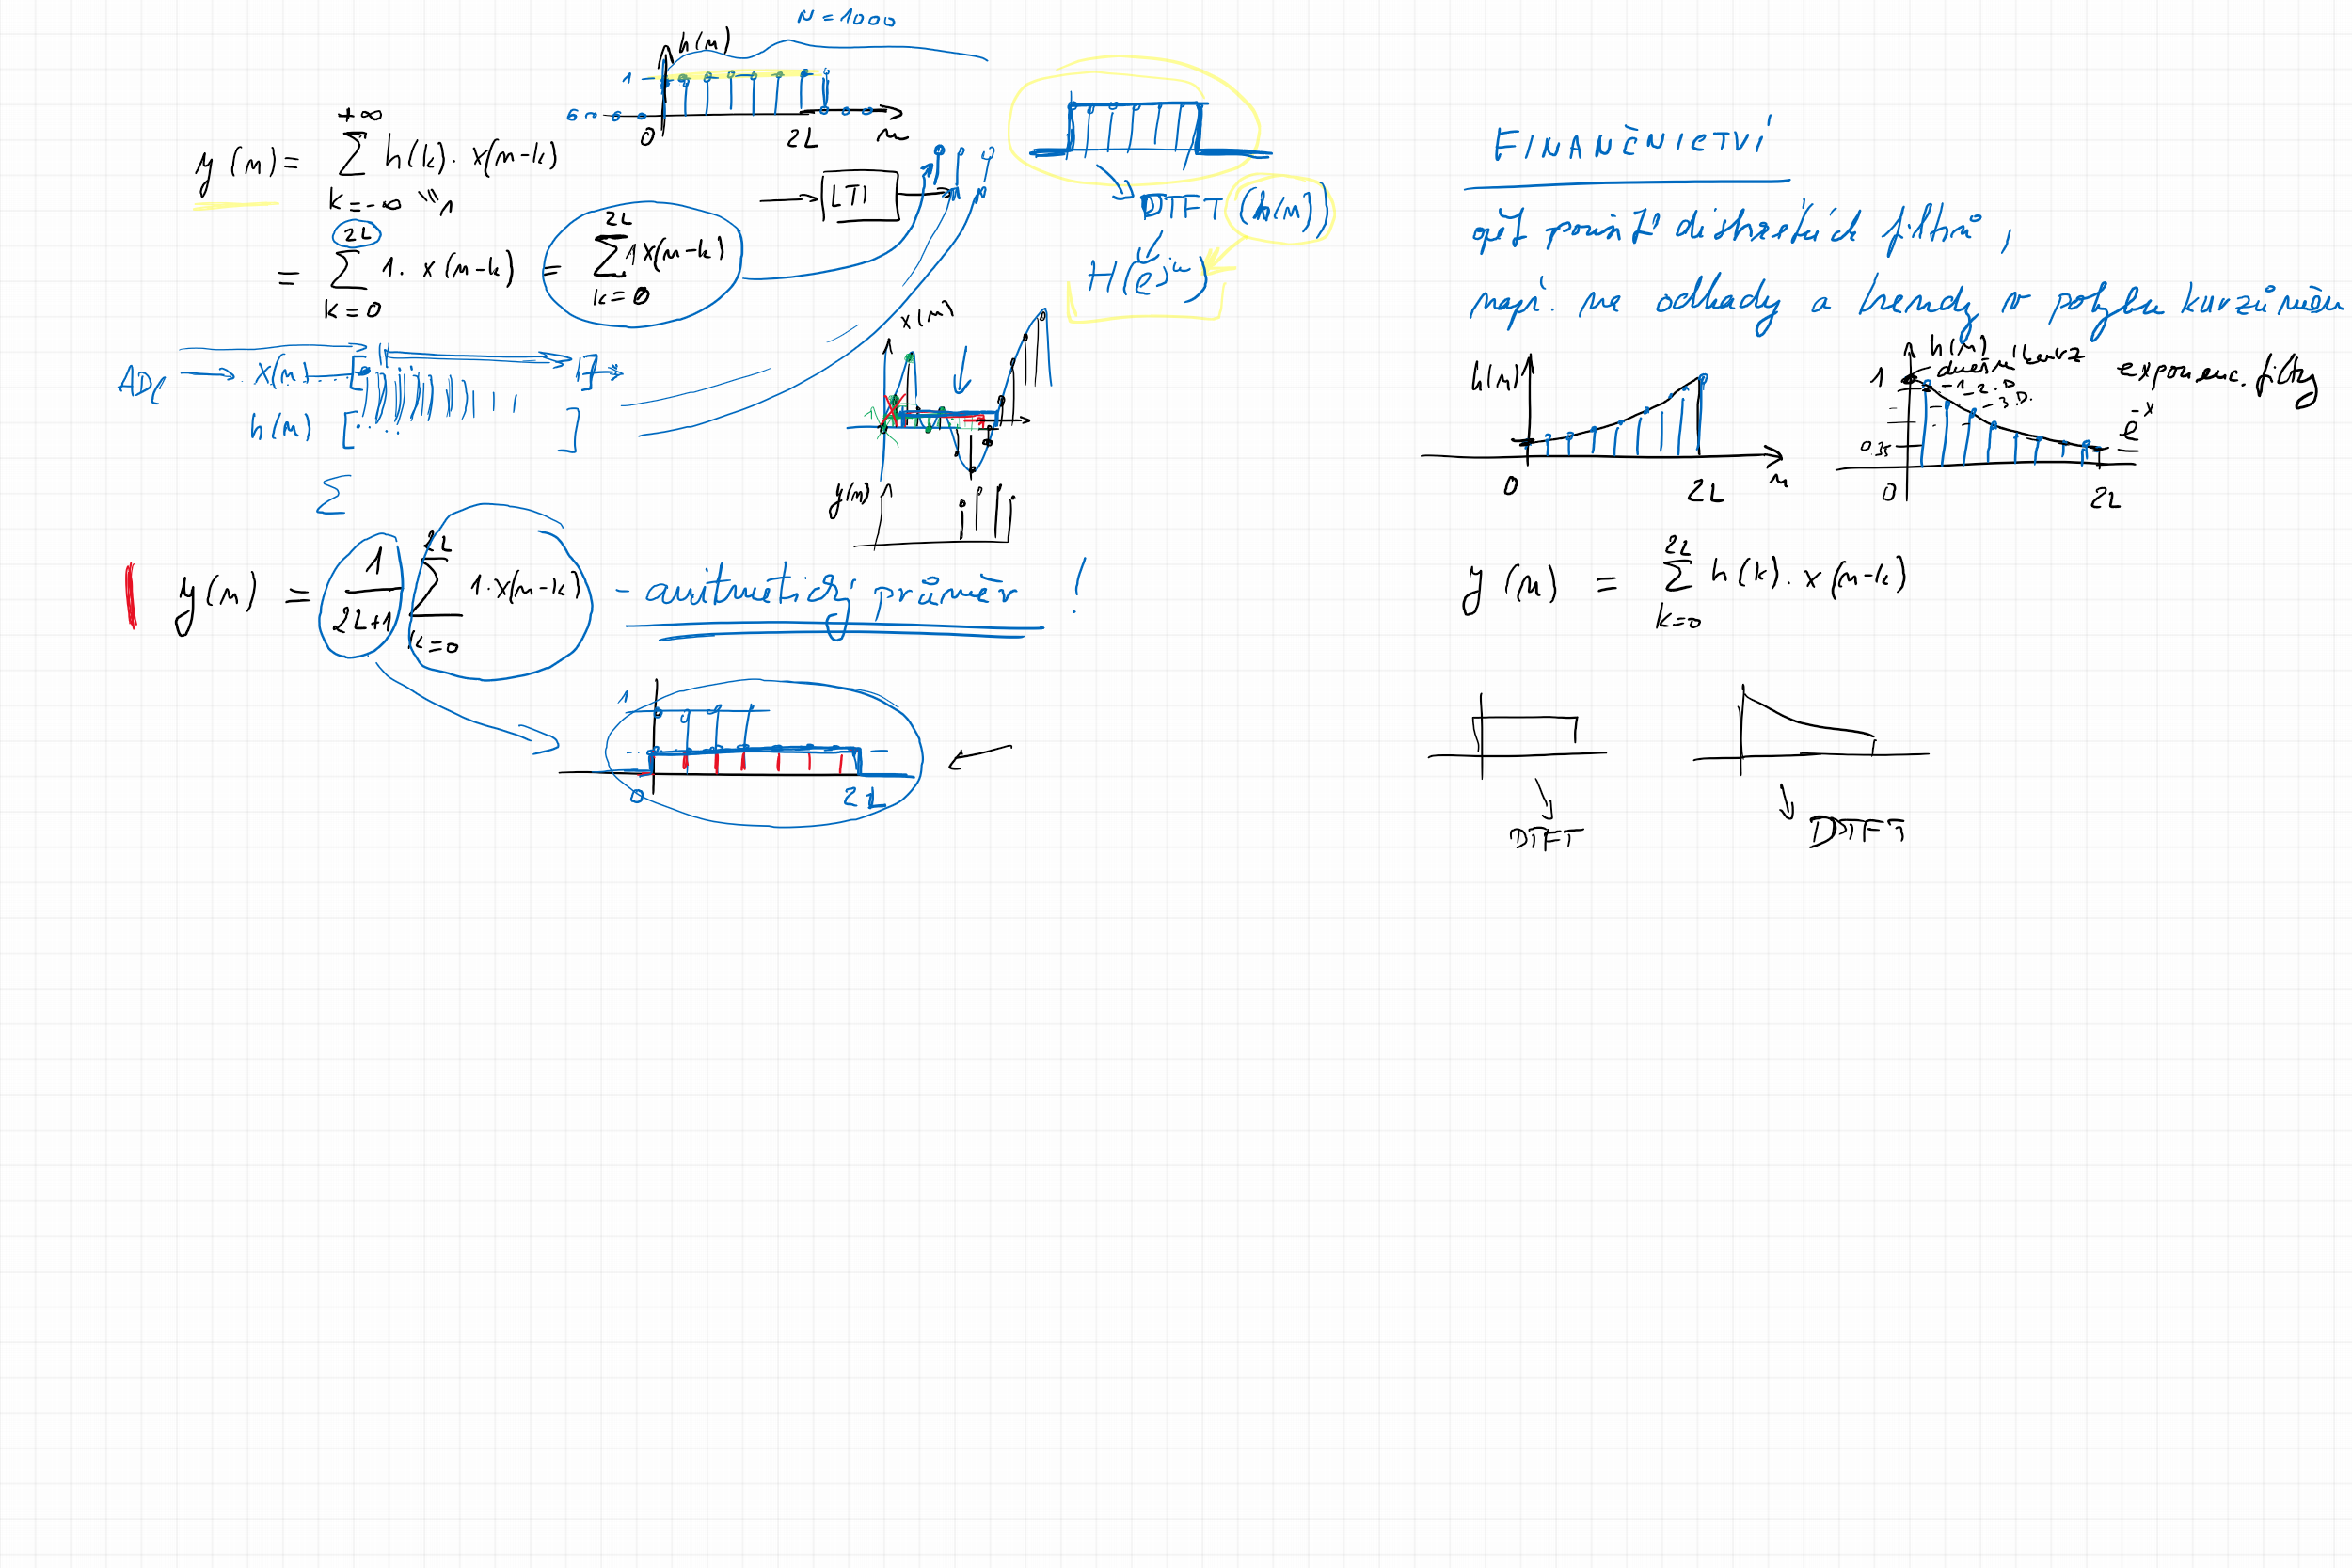 N = 1000
h(n)
1
0
2L
n
y(n) = +∞ ∑ k=-∞ h(k) · x(n-k)
"1
= 2L ∑ k=0 1 · x(n-k) = 2L ∑ k=0 1 x(n-k)
LTI
DTFT (h(n))
H(e^jω)
ADC x(n) [ ]
h(n) [ ]
∑
x(n)
y(n)
y(n) = 1/(2L+1) 2L ∑ k=0 1·x(n-k) - aritmetický průměr !
1
0
2L
FINANČNICTVÍ
opět použití diskrétních filtrů,
např. na odhady a trendy v pohybu kurzů měn
h(n)
0
2L
n
h(n)
dnešní kurz
1
-1-2.D
-3.D.
0.35
0
2L
exponenc. filtry
e^-x
y(n) = 2L ∑ k=0 h(k) · x(n-k)
DTFT
DTFT